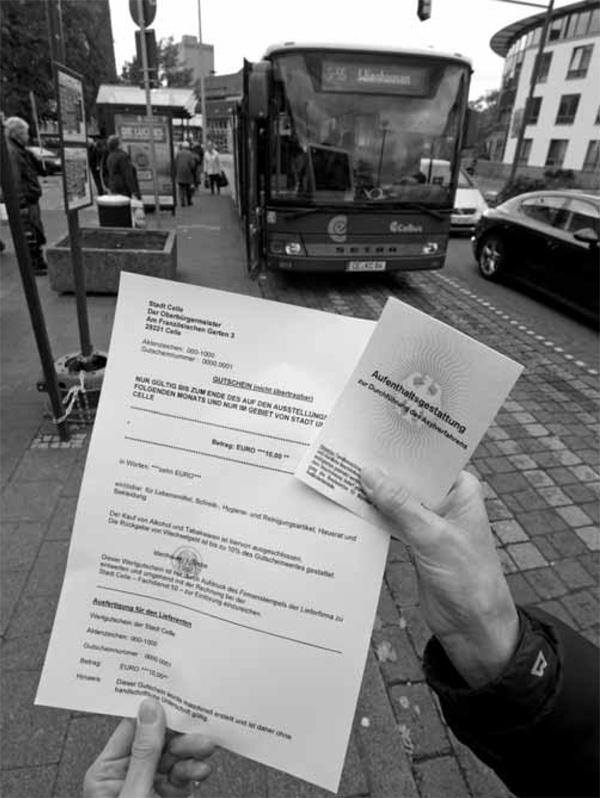 Wienhausen
CeBus
SETRA
Stadt Celle
Der Oberbürgermeister
Am Französischen Garten 3
29221 Celle
Aktenzeichen: 000-1000
Gutscheinnummer : 0000.0001
GUTSCHEIN (nicht übertragbar)
NUR GÜLTIG BIS ZUM ENDE DES AUF DEN AUSSTELLUNG
FOLGENDEN MONATS UND NUR IM GEBIET VON STADT U
CELLE
Betrag: EURO ***10,00 **
in Worten: ***zehn EURO***
einlösbar: für Lebensmittel, Schreib-, Hygiene- und Reinigungsartikel, Hausrat und
Bekleidung
Der Kauf von Alkohol und Tabakwaren ist hiervon ausgeschlossen.
Die Rückgabe von Wechselgeld ist bis zu 10% des Gutscheinwertes gestattet.
Dieser Wertgutschein ist mit dem Aufdruck des Firmenstempels der Lieferfirma zu
entwerten und umgehend mit der Rechnung bei der
Stadt Celle – Fachdienst 50 – zur Einlösung einzureichen.
Ausfertigung für den Lieferanten
Wertgutschein der Stadt Celle
Aktenzeichen: 000-1000
Gutscheinnummer : 0000.0001
Betrag: EURO ***10,00**
Hinweis: Dieser Gutschein wurde maschinell erstellt und ist daher ohne
handschriftliche Unterschrift gültig.
Aufenthaltsgestattung
zur Durchführung des Asylverfahrens